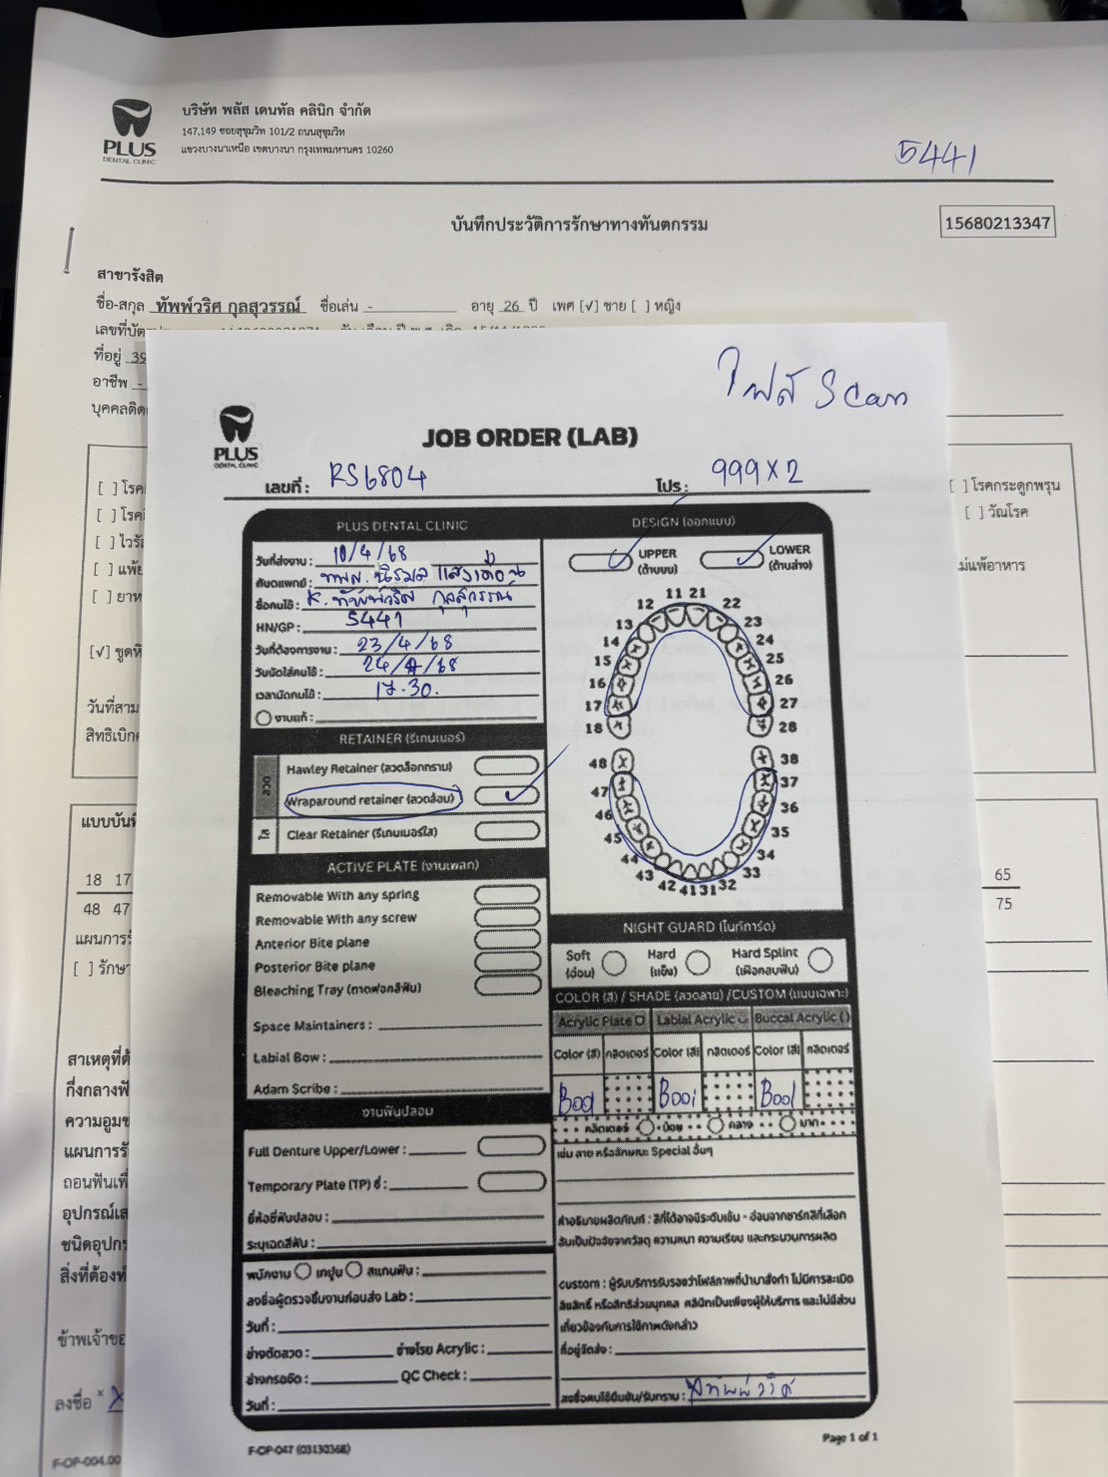 PLUS
DENTAL CLINIC
บริษัท พลัส เดนทัล คลินิก จำกัด
147,149 ซอยสุขุมวิท 101/2 ถนนสุขุมวิท
แขวงบางนาเหนือ เขตบางนา กรุงเทพมหานคร 10260
5441
บันทึกประวัติการรักษาทางทันตกรรม
15680213347
สาขารังสิต
ชื่อ-สกุล ทัพพ์วริศ กุลสุวรรณ์ ชื่อเล่น - อายุ 26 ปี เพศ [√] ชาย [ ] หญิง
ที่อยู่ 39
อาชีพ -
บุคคลติด
[ ] โรค
[ ] โรค
[ ] ไวรั
[ ] แพ้
[ ] ยาห
[√] ขูดหิ
วันที่สาม
สิทธิเบิก
[ ] โรคกระดูกพรุน
[ ] วัณโรค
ม่แพ้อาหาร
แบบบันที
18 17
48 47
65
75
แผนการรั
[ ] รักษา
สาเหตุที่ต้
กึ่งกลางฟั
ความอูมข
แผนการรั
ถอนฟันเพื่
อุปกรณ์เส
ชนิดอุปก
สิ่งที่ต้องท
ข้าพเจ้าขอ
ลงชื่อ x
F-OP-004.00
ไฟล์ Scan
PLUS
DENTAL CLINIC
JOB ORDER (LAB)
เลขที่ : RS6804
โปร : 999x2
PLUS DENTAL CLINIC
วันที่ส่งงาน : 10/4/68
ทันตแพทย์ : ทพญ. นิรมล แสงเดือน
ชื่อคนไข้ : K. ทัพพ์วริศ กุลสุวรรณ์
HN/GP: 5441
วันที่ต้องการงาน : 23/4/68
วันนัดใส่คนไข้ : 24/4/68
เวลานัดคนไข้ : 17.30.
งานแก้ :
RETAINER (รีเทนเนอร์)
ลวด
Hawley Retainer (ลวดล็อกกราม)
Wraparound retainer (ลวดล้อม)
ใส
Clear Retainer (รีเทนเนอร์ใส)
ACTIVE PLATE (งานเพลท)
Removable With any spring
Removable With any screw
Anterior Bite plane
Posterior Bite plane
Bleaching Tray (ถาดฟอกสีฟัน)
Space Maintainers :
Labial Bow :
Adam Scribe :
งานฟันปลอม
Full Denture Upper/Lower :
Temporary Plate (TP) ซี่ :
ยี่ห้อซี่ฟันปลอม :
ระบุเฉดสีฟัน :
พนักงาน เทปูน สแกนฟัน :
ลงชื่อผู้ตรวจชิ้นงานก่อนส่ง Lab :
วันที่ :
ช่างดัดลวด : ช่างโรย Acrylic :
ช่างกรอขัด : QC Check :
วันที่ :
DESIGN (ออกแบบ)
UPPER
(ด้านบน)
LOWER
(ด้านล่าง)
11 21
12 22
13 23
14 24
15 25
16 26
17 27
18 28
48 38
47 37
46 36
45 35
44 34
43 33
42 41 31 32
NIGHT GUARD (ไนท์การ์ด)
Soft
(อ่อน)
Hard
(แข็ง)
Hard Splint
(เฝือกสบฟัน)
COLOR (สี) / SHADE (ลวดลาย) /CUSTOM (แบบเฉพาะ)
Acrylic Plate Labial Acrylic Buccal Acrylic ()
Color (สี) กลิตเตอร์ Color (สี) กลิตเตอร์ Color (สี) กลิตเตอร์
B001 B001 B001
กลิตเตอร์ น้อย กลาง มาก
เช่น ลาย หรือลักษณะ Special อื่นๆ
คำอธิบายผลิตภัณฑ์ : สีที่ได้อาจมีระดับเข้ม - อ่อนจากชาร์ทสีที่เลือก
อันเป็นปัจจัยจากวัสดุ ความหนา ความเรียบ และกระบวนการผลิต
custom : ผู้รับบริการรับรองว่าไฟล์ภาพที่นำมาสั่งทำ ไม่มีการละเมิด
ลิขสิทธิ์ หรือสิทธิส่วนบุคคล คลินิกเป็นเพียงผู้ให้บริการ และไม่มีส่วน
เกี่ยวข้องกับการใช้ภาพดังกล่าว
ที่อยู่จัดส่ง :
ลงชื่อคนไข้ยืนยัน/รับทราบ : ทัพพ์วริศ
F-OP-047 (03130368)
Page 1 of 1